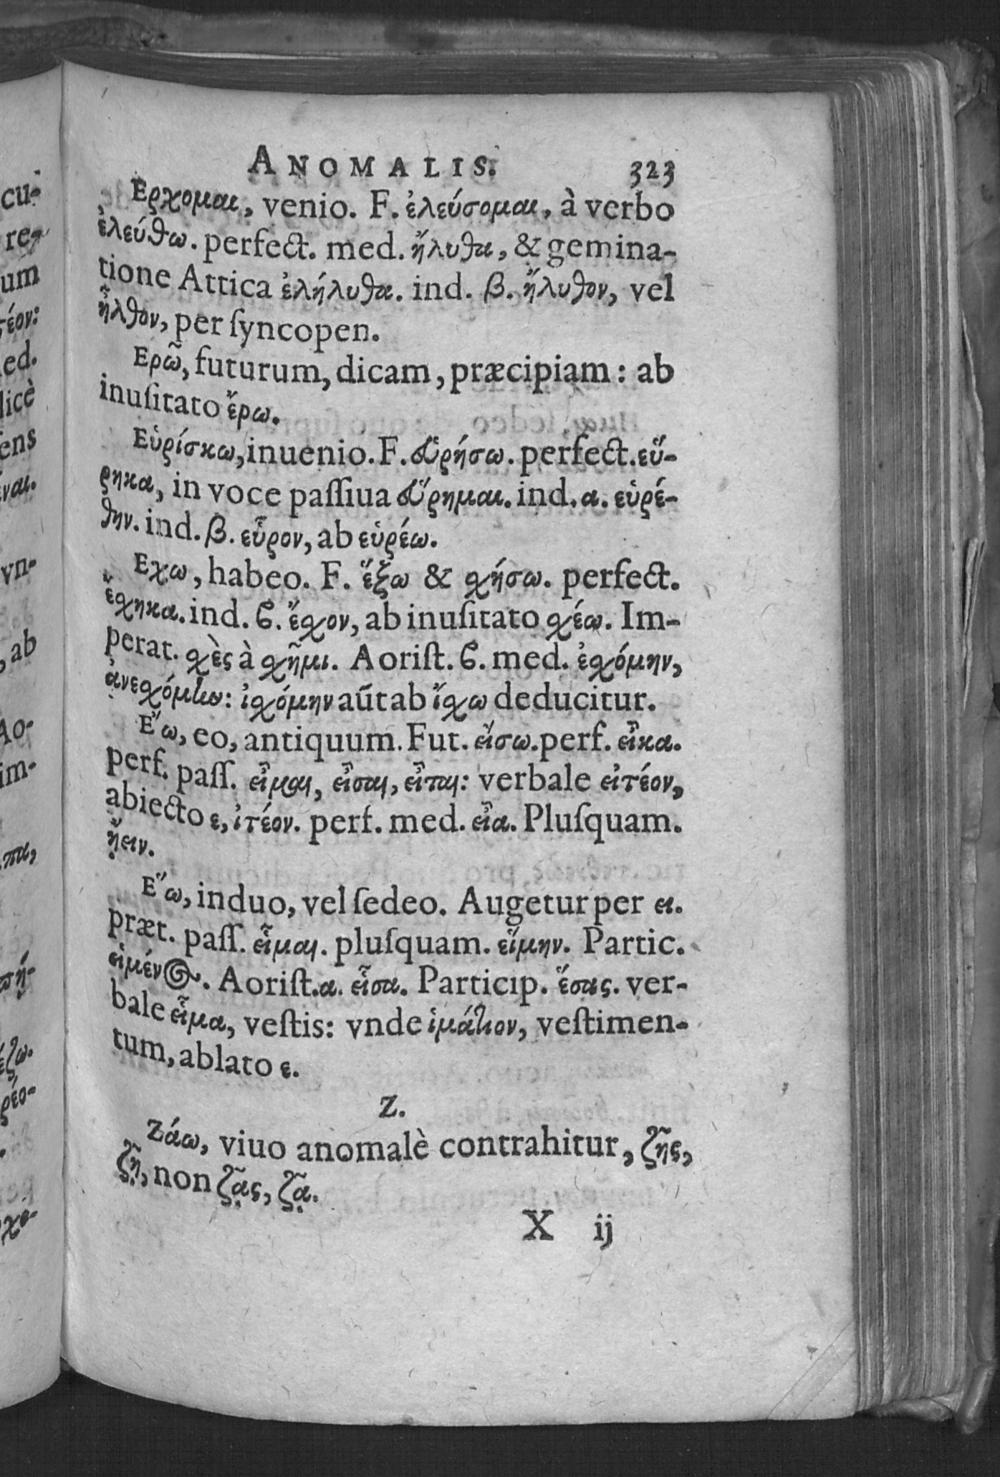 ANOMALIS. 323
Ερχομαι, venio. F. ἐλεύσομαι, à verbo
ἐλεύθω. perfect. med. ἤλυθα, & gemina-
tione Attica ἐλήλυθα. ind. β. ἤλυθον, vel
ἦλθον, per ſyncopen.
Ερῶ, futurum, dicam, præcipiam: ab
inuſitato ἔρω.
Εὑρίσκω, inuenio. F. εὑρήσω. perfect. εὕ-
ρηκα, in voce paſſiua εὕρημαι. ind. α. εὑρέ-
θην. ind. β. εὗρον, ab εὑρέω.
Εχω, habeo. F. ἕξω & χήσω. perfect.
ἔχηκα. ind. ϐ. ἔχον, ab inuſitato χέω. Im-
perat. χὲς à χῆμι. Aoriſt. ϐ. med. ἐχόμην,
ἀνεχόμην: ἰχόμην aūt ab ἴχω deducitur.
Ἔω, eo, antiquum. Fut. εἴσω. perf. εἶκα.
perf. paſſ. εἶμαι, εἶσαι, εἶται: verbale εἰτέον,
abiecto ε, ἰτέον. perf. med. εἶα. Pluſquam.
ᾔειν.
Ἕω, induo, vel ſedeo. Augetur per ει.
præt. paſſ. εἷμαι. pluſquam. εἵμην. Partic.
εἱμένος. Aoriſt. α. εἷσα. Particip. ἕσας. ver-
bale εἷμα, veſtis: vnde ἱμάτιον, veſtimen-
tum, ablato ε.
Z.
Ζάω, viuo anomalè contrahitur, ζῇς,
ζῇ, non ζᾷς, ζᾷ.
X ij
cu-
re-
um
τέον:
ed.
licè
ens
ναι.
vn-
, ab
Ao-
im-